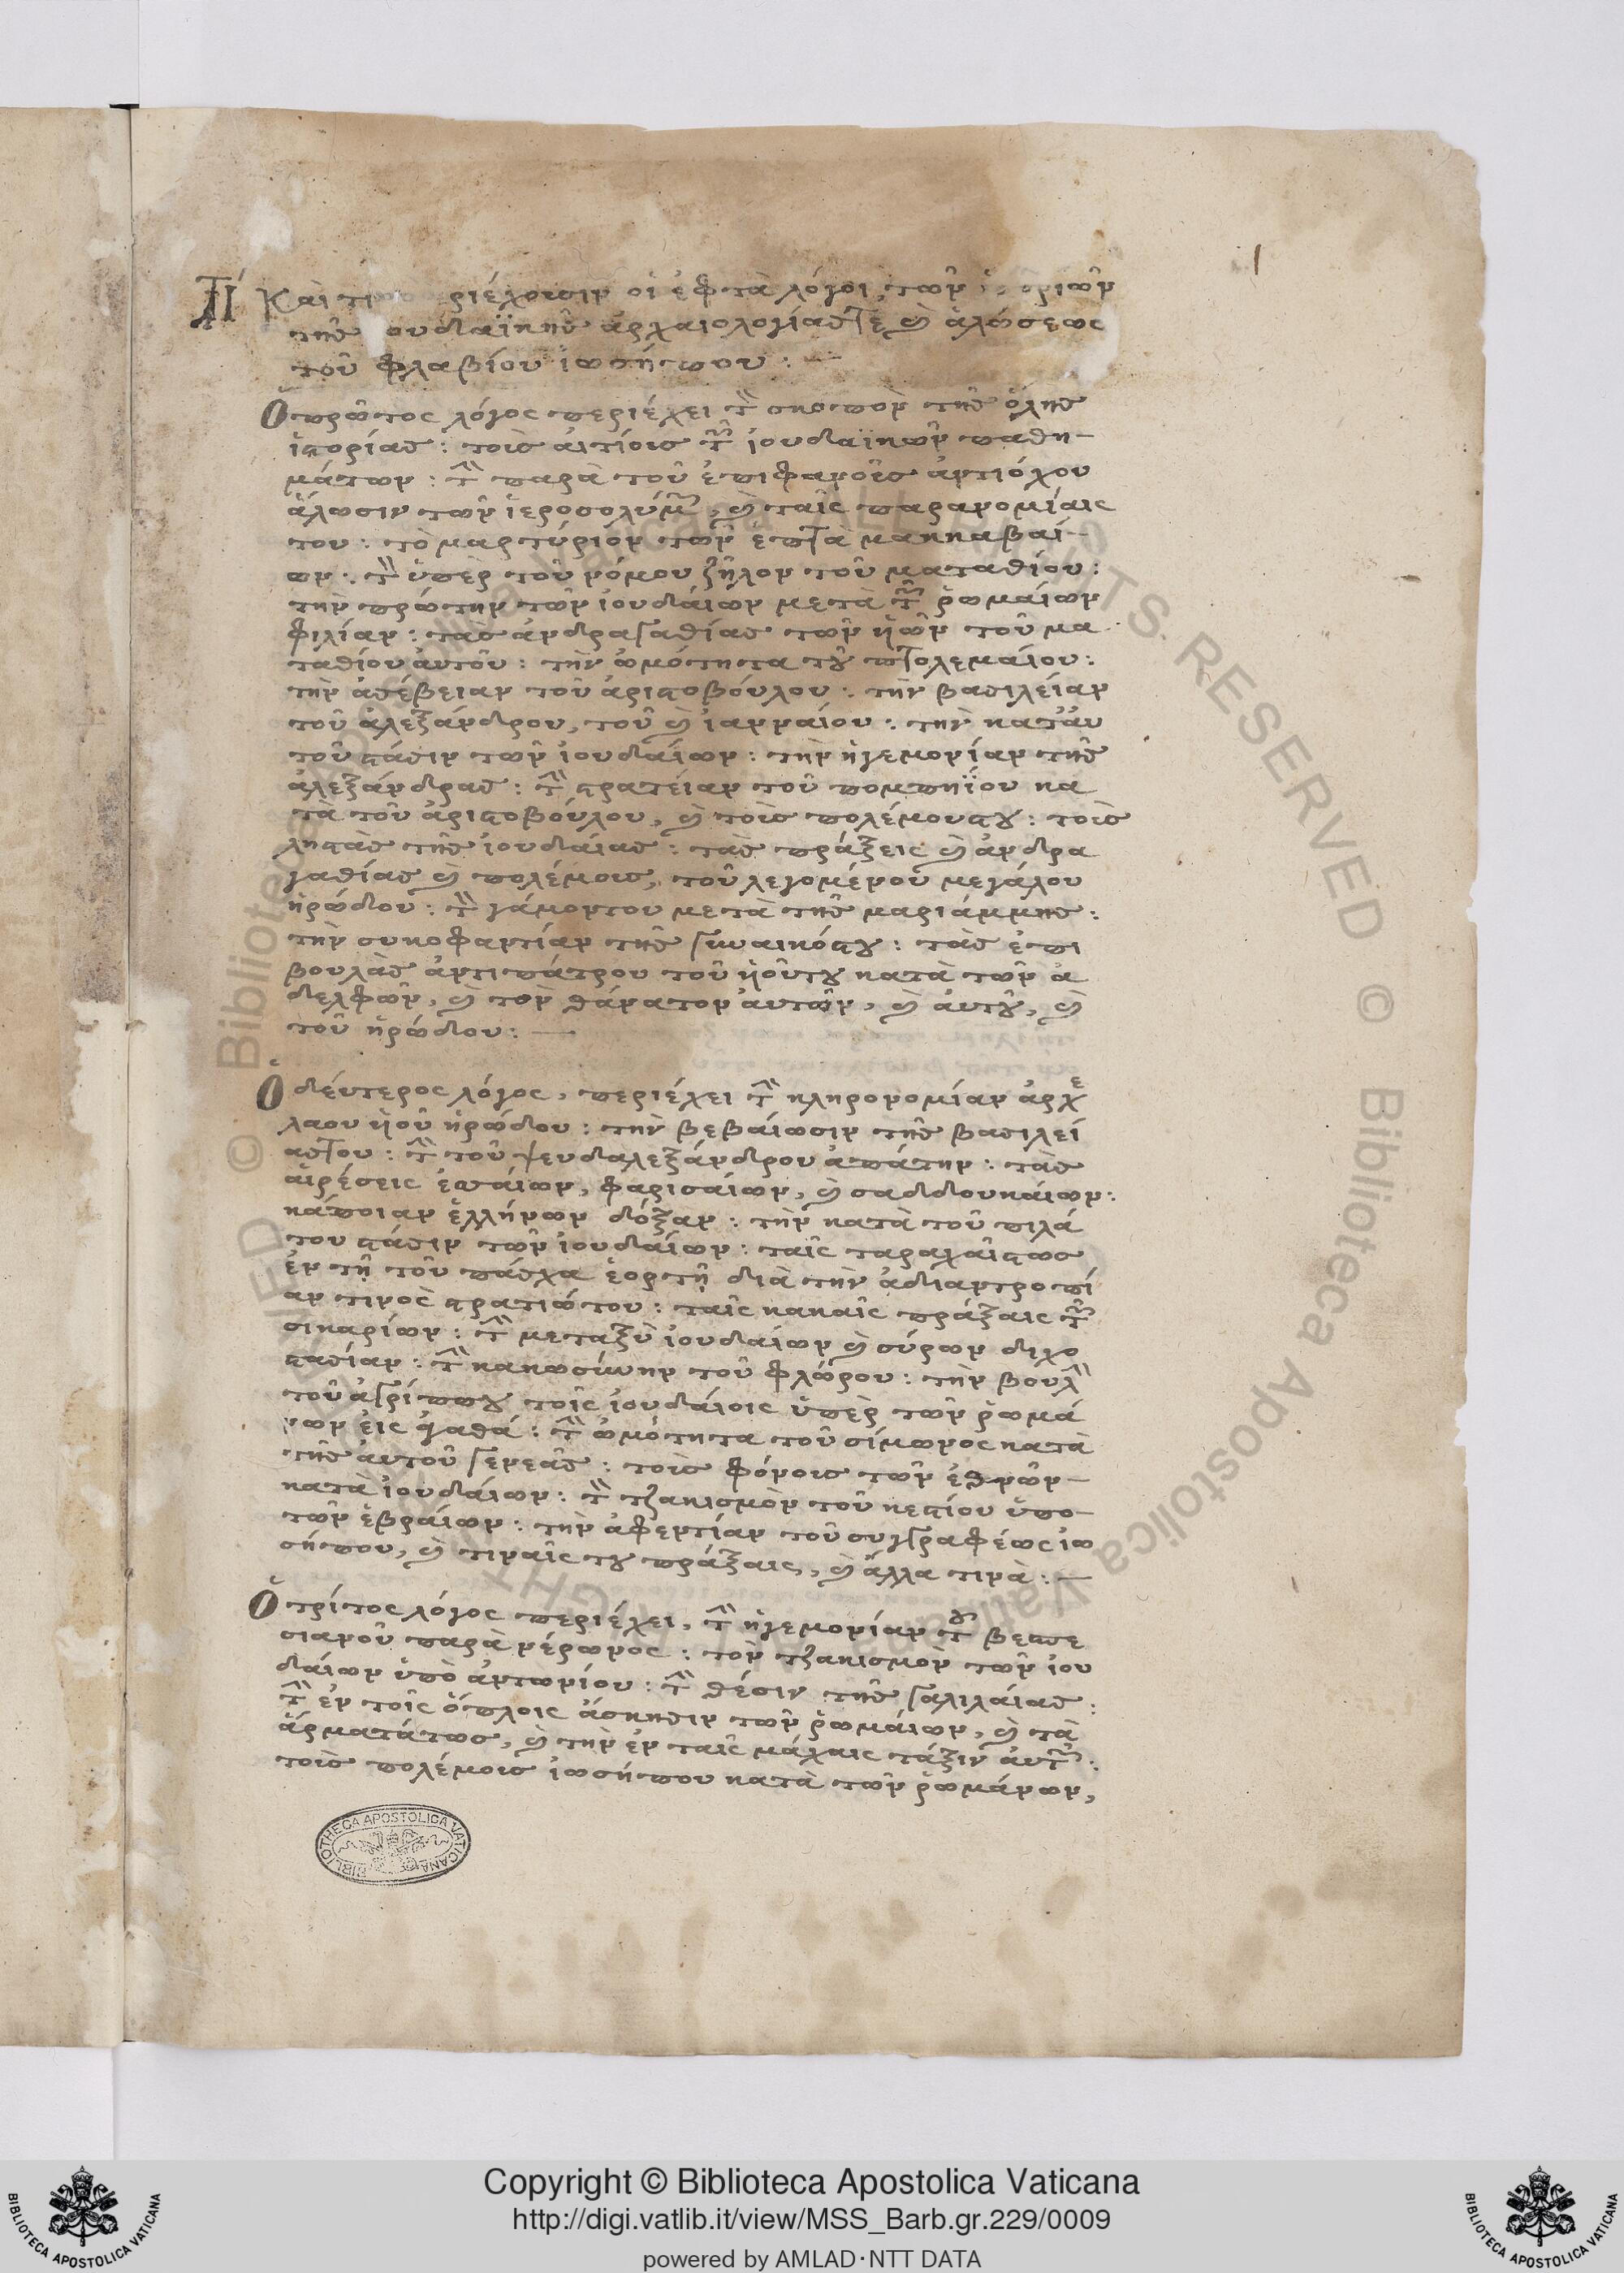 Τί Καὶ τί περιέχουσιν οἱ ἑφτὰ λόγοι, τῶν ἱστοριῶν
τῆς ἰουδαϊκῆς ἀρχαιολογίας τὲ καὶ ἁλώσεως
τοῦ φλαβίου ἰωσήπου : —
Ὁ πρῶτος λόγος περιέχει τὸν σκοπὸν τῆς ὅλης
ἱστορίας : τοὶς ἀιτίοις τῶν ἰουδαϊκῶν παθη-
μάτων : τὴν παρὰ τοῦ ἐπιφανοῦς ἀντιόχου
ἅλωσιν τῶν ἱεροσολύμων, καὶ ταῖς παρανομίαις
του : τὸ μαρτύριον τῶν ἑπτὰ μακκαβαί-
ων : τὸν ὑπὲρ τοῦ νόμου ζῆλον τοῦ ματαθίου :
τὴν πρώτην τῶν ἰουδάιων μετὰ τῶν ῥωμάιων
φιλίαν : τὰς ἀνδραγαθίας τῶν ἡῶν τοῦ μα
ταθίου ἀυτοῦ : τὴν ὠμότητα τοῦ πτολεμάιου :
τὴν ἀσέβειαν τοῦ ἀριστοβόυλου : τὴν βασιλείαν
τοῦ ἀλεξάνδρου, τοῦ καὶ ἰανναίου : τὴν κατ' ἀυ
τοῦ στάσιν τῶν ἰουδάιων : τὴν ἡγεμονίαν τῆς
ἀλεξάνδρας : τὴν στρατείαν τοῦ πομπηΐου κα
τὰ τοῦ ἀριστοβόυλου, καὶ τοὶς πολέμους του : τοὶς
ληστὰς τῆς ἰουδάιας : τὰς πράξεις καὶ ἀνδρα
γαθίας καὶ πολέμοις, τοῦ λεγομένου μεγάλου
ἡρώδου : τὸν γάμον του μετὰ τῆς μαριάμμης :
τὴν συκοφαντίαν τῆς γυναικός του : τὰς ἐπι
βουλὰς ἀντιπάτρου τοῦ ἡοῦ του κατὰ τῶν ἀ
δελφῶν, καὶ τὸν θάνατον ἀυτῶν, καὶ ἀυτοῦ, καὶ
τοῦ ἡρώδου : —
Ὁ δέυτερος λόγος, περιέχει τὴν κληρονομίαν ἀρχε
λαου ἡοῦ ἡρώδου : τὴν βεβάιωσιν τῆς βασιλεί
ας του : τὴν τοῦ ψευδαλεξάνδρου ἀπάτην : τὰς
ἁιρέσεις ἐσσάιων, φαρισαίων, καὶ σαδδουκάιων :
κάποιαν ἑλλήνων δόξαν : τὴν κατὰ τοῦ πιλά
του στάσιν τῶν ἰουδάιων : ταῖς ταραχαῖς πως
ἐν τῇ τοῦ πάσχα ἑορτῇ διὰ τὴν ἀδιαντροπί
αν τινὸς στρατιώτου : ταῖς κακαῖς πράξαις τῶν
σικαρίων : τὴν μεταξὺ ἰουδάιων καὶ σύρων διχο
στασίαν : τὴν κακωσύνην τοῦ φλώρου : τὴν βουλὴν
τοῦ ἀγρίππου τοῖς ἰουδάιοις ὑπὲρ τῶν ῥωμά
νων ἐις ἀγαθά : τὴν ὠμότητα τοῦ σίμωνος κατὰ
τῆς ἀυτοῦ γενεᾶς : τοὶς φόνοις τῶν ἐθνῶν-
κατὰ ἰουδάιων : τὸν τζακισμὸν τοῦ κεστίου ὑπο-
τῶν ἑβράιων : τὴν ἀφεντίαν τοῦ συγγραφέως ἰω
σήπου, καὶ τιναῖς του πράξαις, καὶ ἄλλα τινὰ : —
Ὁ τρίτος λόγος περιέχει, τὴν ἡγεμονίαν τοῦ βεσπε
σιανοῦ παρὰ νέρωνος : τὸν τζακισμὸν τῶν ἰου
δάιων ὑπὸ ἀντωνίου : τὴν θέσιν τῆς γαλιλάιας :
τὴν ἐν τοῖς ὅπλοις ἄσκησιν τῶν ῥωμάιων, καὶ τὰ
ἅρματά τως, καὶ τὴν ἐν ταῖς μάχαις τάξιν ἀυτῶν :
τοὶς πολέμοις ἰωσήπου κατὰ τῶν ῥωμάνων,
1
BIBLIOTHECA APOSTOLICA VATICANA
Copyright © Biblioteca Apostolica Vaticana
http://digi.vatlib.it/view/MSS_Barb.gr.229/0009
powered by AMLAD·NTT DATA